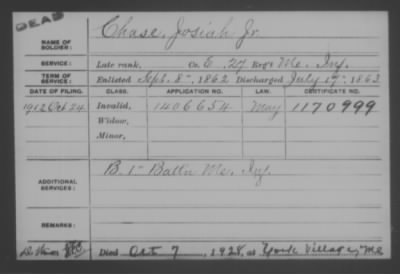 DEAD
NAME OF SOLDIER: Chase, Josiah Jr.
SERVICE: Late rank, Co. E, 27 Reg't Me. Inf.
TERM OF SERVICE: Enlisted Sept. 8", 1862 Discharged July 17", 1863
DATE OF FILING. CLASS. APPLICATION NO. LAW. CERTIFICATE NO.
1902 Oct. 24 Invalid, 1406654 May 1170999
Widow,
Minor,
ADDITIONAL SERVICES: B. 1" Batt'n Me. Inf.
REMARKS:
Died Oct 7, 1928, at York Village, Me